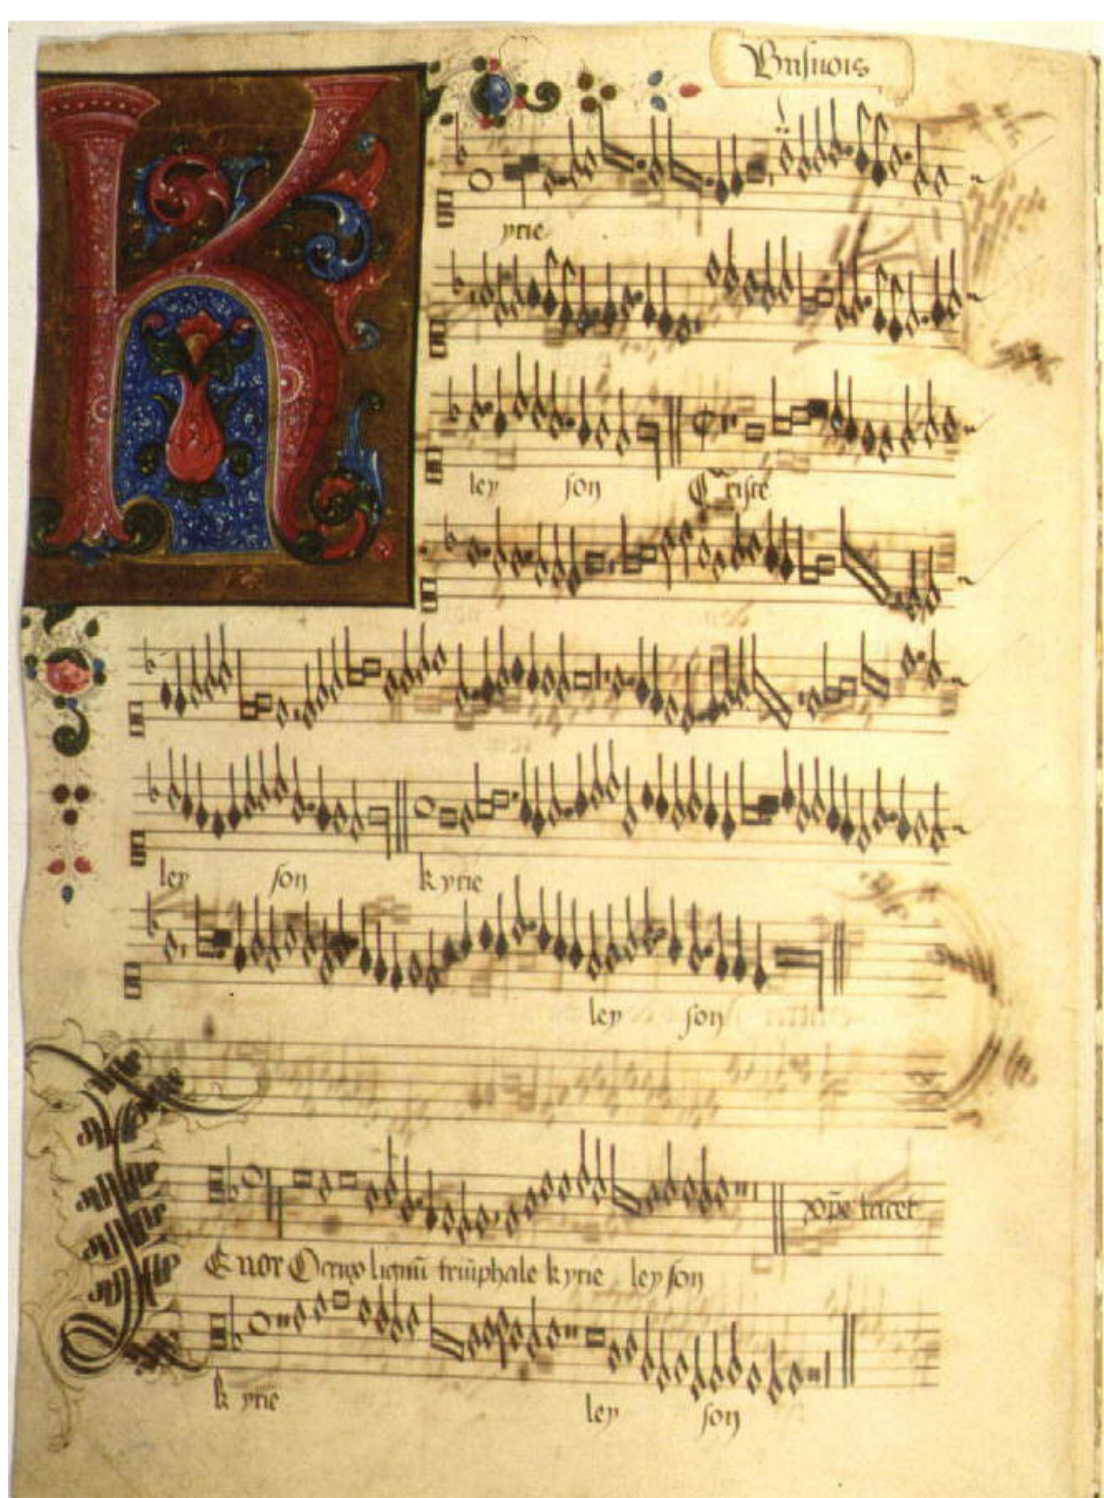 Busnois
yrie
ley son Criste
ley son kyrie
ley son
xp̄e tacet
Enor O crux lignū triūphale kyrie ley son
k yrie ley son